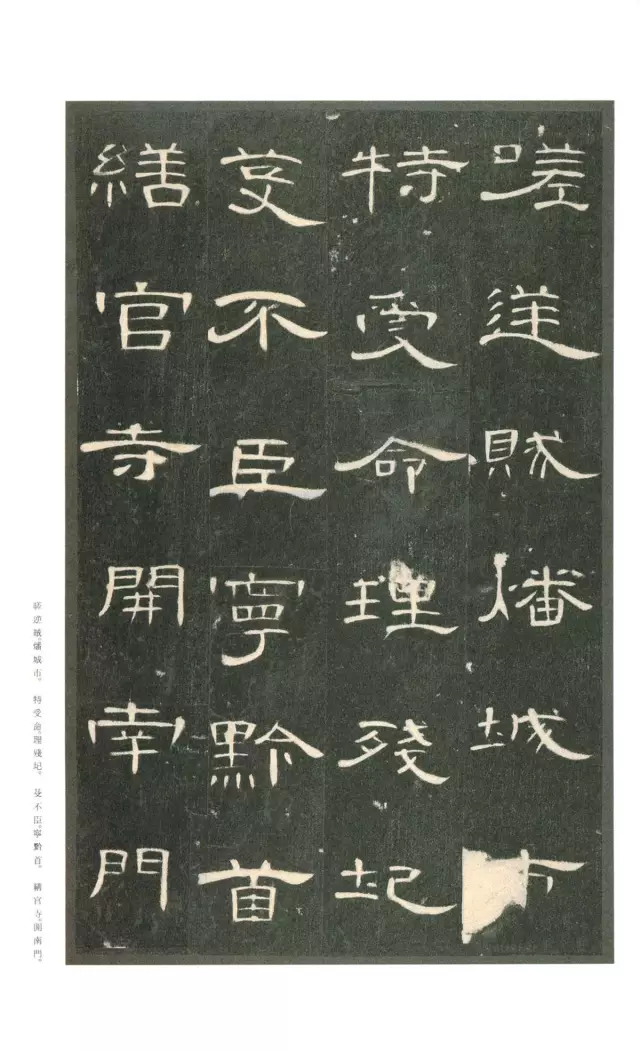 嗟逆賊燔城市
特受命理殘圮
芟不臣寧黔首
繕官寺開南門
嗟逆賊。燔城市。 特受命。理殘圮。 芟不臣。寧黔首。 繕官寺。開南門。